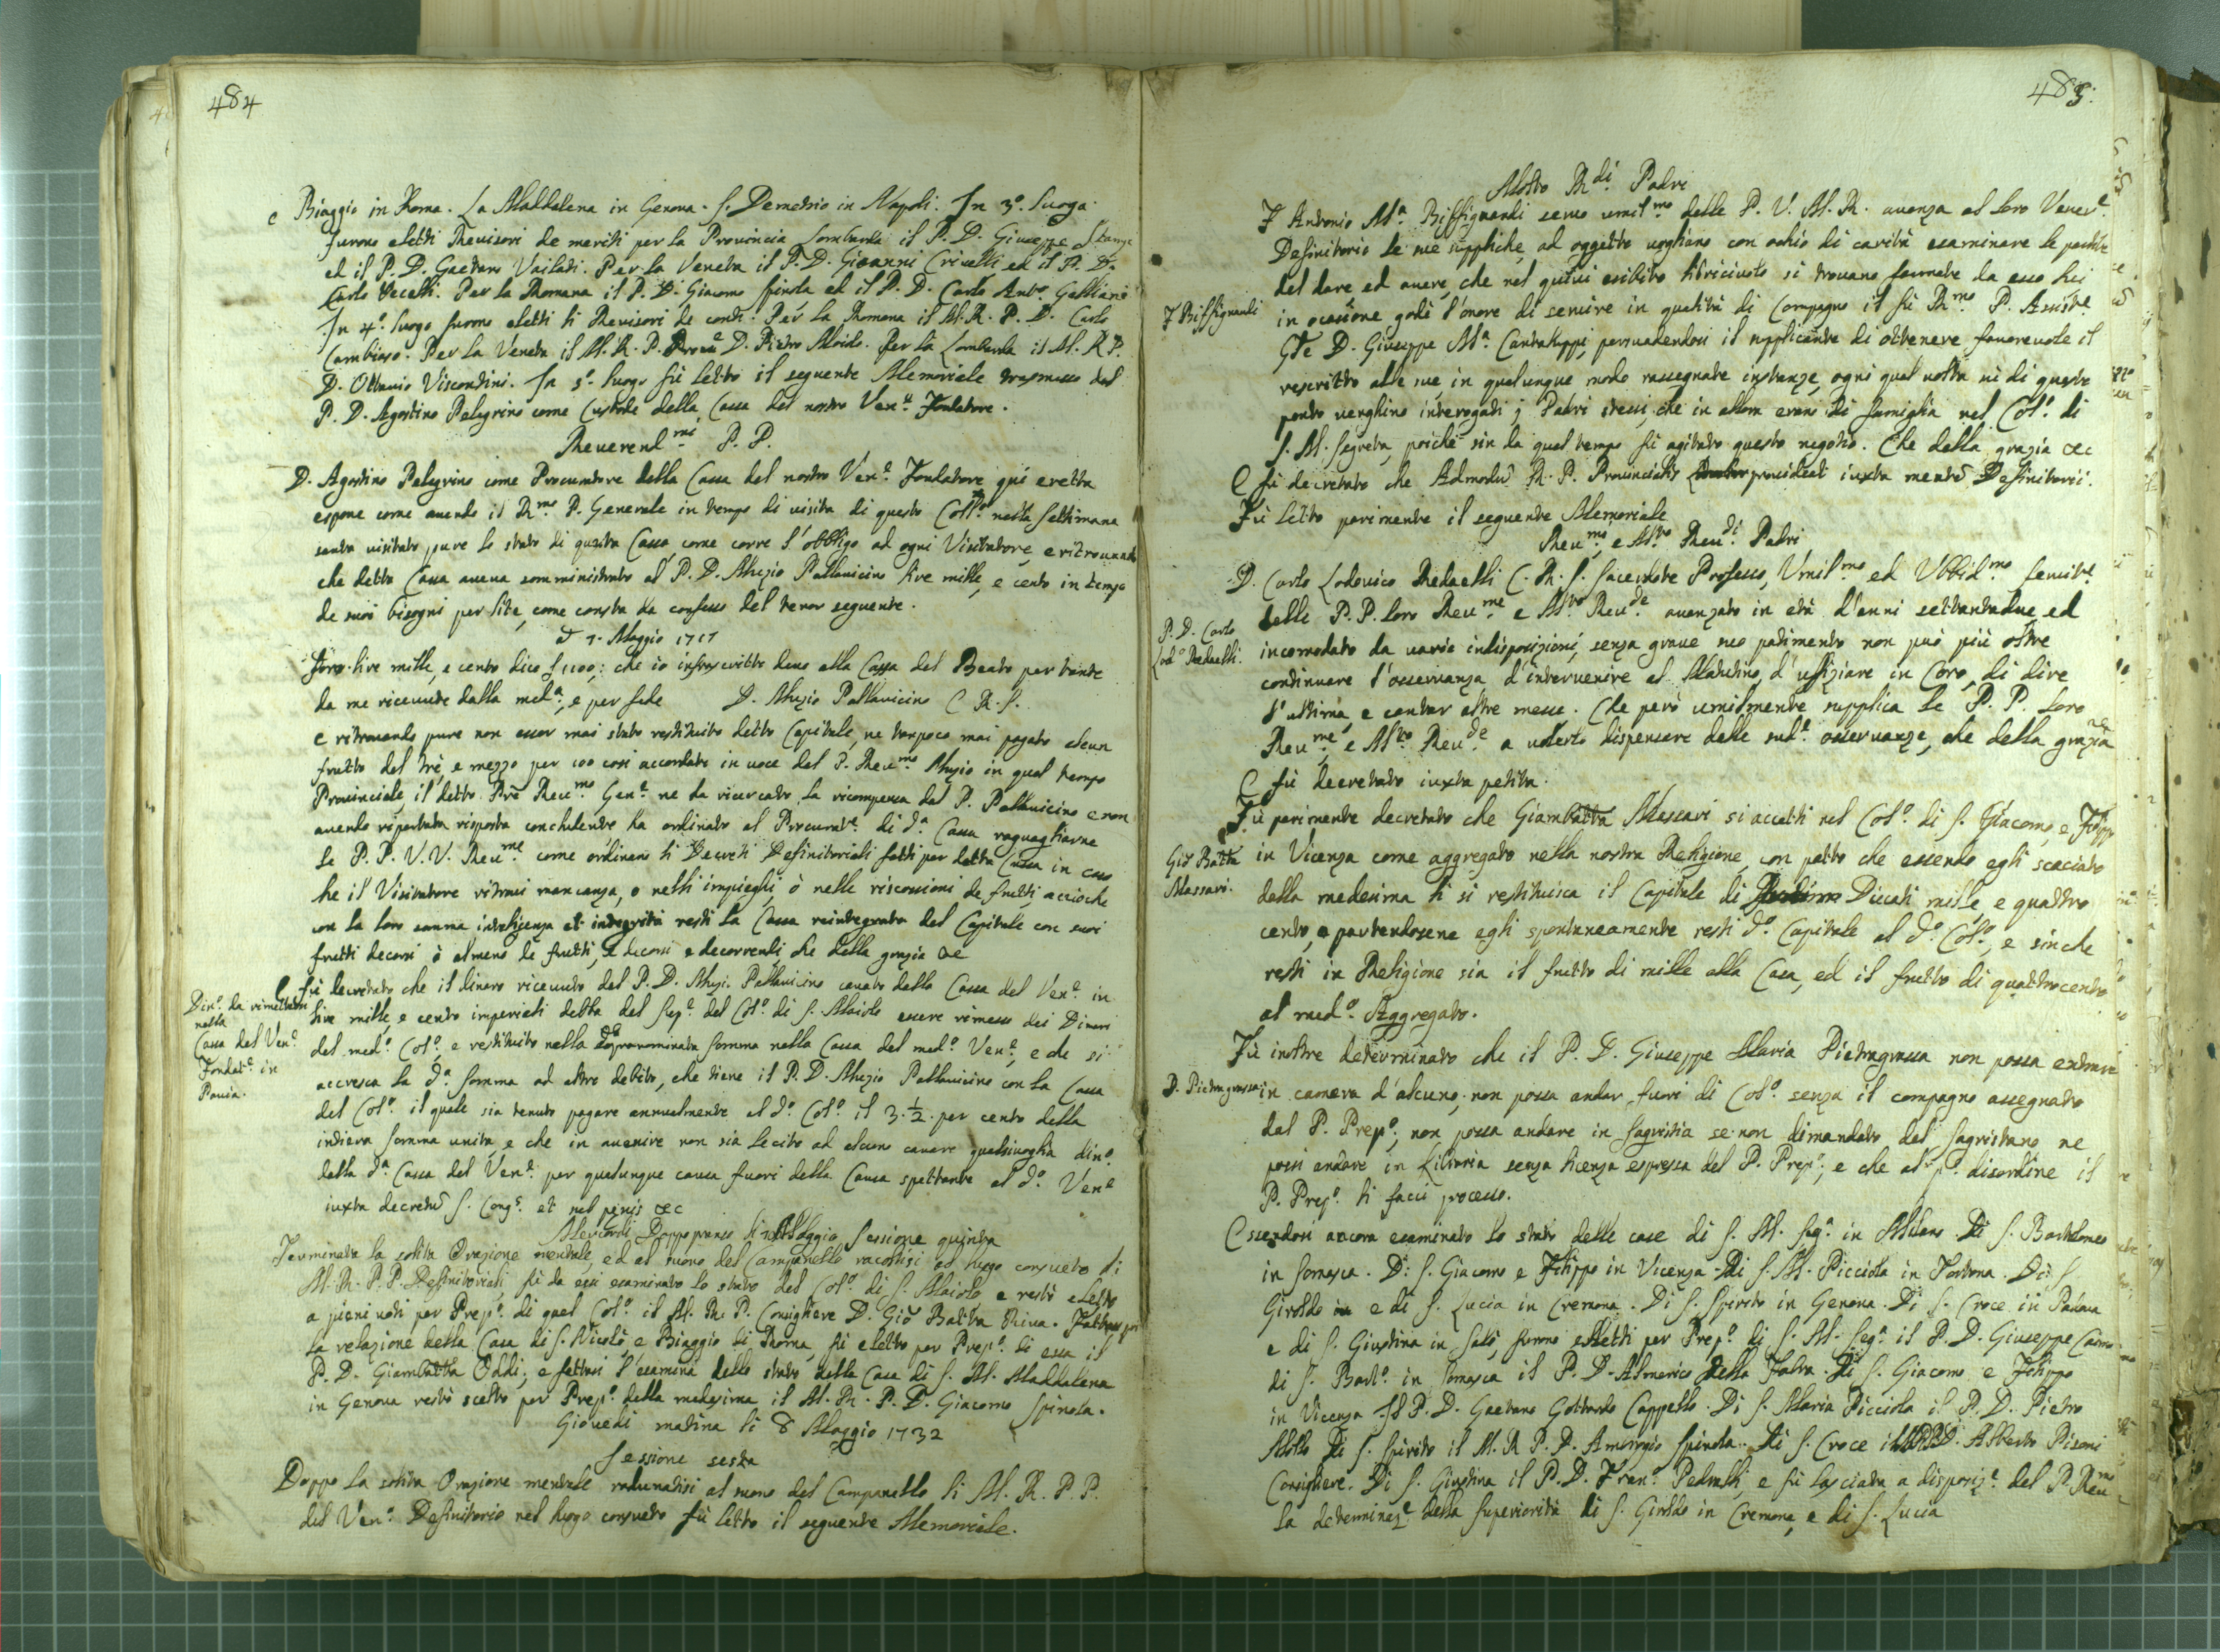 484
e Biaggio in Roma. La Maddalena in Genova. S. Demetrio in Napoli. In 3º. luogo
furono eletti Revisori de meriti per la Provincia Lombarda il P. D. Giuseppe Stampa
ed il P. D. Gaetano Vailati. Per la Veneta il P. D. Gioanni Crivelli ed il P. D.
Carlo Vecelli. Per la Romana il P. D. Giacomo Spinola ed il P. D. Carlo Antº. Galliani
In 4º. luogo furono eletti li Revisori de conti. Per la Romana il M. R. P. D. Carlo
Cambiaso. Per la Veneta il M. R. P. D. Pietro Aloido. Per la Lombarda il M. R. P.
D. Ottavio Viscontini. In 5º. luogo fù letto il seguente Memoriale trasmesso dal
P. D. Agostino Pelegrino come Custode della Cassa del nostro Venᵉ. Fondatore.
Reverendᵐⁱ P. P.
D. Agostino Pelegrino come Procuratore della Cassa del nostro Venᵉ. Fondatore qui eretta
espone come avendo il Rᵐᵒ P. Generale in tempo di visita di questo Collº. nella settimana
santa visitato pure lo stato di questa Cassa, come corre l'obbligo ad ogni Visitatore, e ritrovando
che detta Cassa aveva somministrato al P. D. Alugio Pallavicino lire mille, e cento in tempo
de suoi bisogni per lite, come consta da confesso del tenor seguente.
a 7. Maggio 1717
lire mille, e cento dico £ 1100: che io infrascritto devo alla Cassa del Beato per tante
da me ricevute dalla medª., e per fede D. Alugio Pallavicino C. R. S.
e ritrovando pure non esser mai stato restituito detto Capitale, ne tampoco mai pagato alcun
frutto del trè, e mezzo per 100 cosi accordato in voce dal P. Revᵐᵒ. Alugio in qual tempo
Provinciale il detto Prē Revᵐᵒ Genᵉ. ne ha ricercato la ricompensa dal P. Pallavicino e non
avendo riportata risposta concludente ha ordinato al Procuratᵉ. di dª. Cassa raguagliarne
le P. P. V. V. Revᵐᵉ come ordinano li Decreti Definitoriali fatti per detta Cassa in caso
che il Visitatore ritrovi mancanza, o nelli impieghi, ò nelle riscossioni de frutti accioche
con la loro somma inteligenza et integrità resti la Cassa reintegrata del Capitale con suoi
frutti decorsi ò almeno de frutti, e decorsi e decorrenti, che della grazia &c
E fù decretato che il dinaro ricevuto dal P. D. Alugi. Pallavicino cavato dalla Cassa del Venᵉ. in
Dinº. da rimettere
nella
Cassa del Venᵉ.
Fondatᵉ. in
Pavia.
lire mille, e cento imperiali debba dal Sepº. del Colº. di S. Maiolo essere rimesso dei Dinari
del medº. Colº., e restituito nella sopranominata somma nella Cassa del medº. Venᵉ., e che si
accresca la dª. somma ad altro debito, che tiene il P. D. Alugio Pallavicino con la Cassa
del Colº. il quale sia tenuto pagare annualmente al dº. Colº. il 3. ½. per cento della
intiera somma unita, e che in avenire non sia lecito ad alcuno cavare qualsivoglia dinº.
dalla dª. Cassa del Venᵉ. per qualunque causa fuori della Causa spettante al dº. Venᵉ
iuxta decretū S. Congᵉ. et sub penis &c
Mercordi Doppo pranso li 7 Maggio Sessione quinta
Terminata la solita Orazione mentale, ed al suono del Campanello racoltisi al luogo consueto li
M. R. P. P. Definitoriali, fù da essi esaminato lo stato del Colº. di S. Maiolo e restò eletto
a pieni voti per Prepº. di quel Colº. il M. R. P. Consigliere D. Giò Batta Riva. Fattasi poi
la relazione della Casa di S. Nicolò, e Biaggio di Roma, fù eletto per Prepº. di essa il
P. D. Giambatta Oddi; e fattasi l'esamina dello stato della Casa di S. M. Maddalena
in Genova restò scelto per Prepº. della medesima il M. R. P. D. Giacomo Spinola.
Giovedi matina li 8 Maggio 1732
Sessione sesta
Doppo la solita Orazione mentale radunatisi al suono del Campanello li M. R. P. P.
del Venᵉ. Definitorio nel luogo consueto fù letto il seguente Memoriale.
485.
Molto Rᵈⁱ. Padri
F. Antonio Mª. Biffignandi servo umilᵐᵒ delle P. V. M. R. avanza al loro Venerᵉ.
Definitorio le sue suppliche, ad oggetto vogliano con ochio di carità esaminare le partite
del dare ed avere, che nel quivi esibito libriciuolo si trovano formate da esso lui
F Biffignandi
in ocasione godè l'onore di servire in qualità di Compagno il fù Rᵐᵒ P. Assistᵉ.
Gle D. Giuseppe Mª. Cantaluppi, persuadendosi il supplicante di ottenere favorevole il
rescritto alle sue, in qualunque modo rassegnate instanze, ogni qual volta sù di questo
ponto venghino interogati i Padri stessi, che in allora erano di famiglia nel Colº. di
S. M. Segreta, poichè sin da quel tempo fù agitato questo negotio. Che della grazia &c
E fù decretato che Admodū R. P. Provincialis provideat iuxta mentē Definitorii.
Fù letto parimente il seguente Memoriale
Revᵐⁱ, e Mᵗᵒ Revᵈⁱ Padri
D. Carlo Lodovico Redaelli C. R. S. Sacerdote Professo, Umilᵐᵒ ed Ubbidᵐᵒ servitᵉ.
delle P. P. loro Revᵐᵉ e Mᵗᵒ Revᵈᵉ avanzato in età d'anni settantadue, ed
P. D. Carlo
Lodº Redaelli.
incomodato da varie indisposizioni, senza grave suo patimento non può più oltre
continuare l'osservanza d'intervenire al Matutino, d'ufiziare in Coro, di dire
l'ultima, e cantar altre messe. Che però umilmente supplica le P. P. loro
Revᵐᵉ, e Mᵗᵒ Revᵈᵉ a volerlo dispensare dalle sudᵉ. osservanze, che della grazia
E fù decretato iuxta petita.
Fù parimente decretato che Giambatta Massari si accetti nel Colº. di S. Giacomo, e Filippo
Giò Batta
Massari.
in Vicenza come aggregato nella nostra Religione, con patto che essendo egli scaciato
dalla medesima li si restituisca il Capitale di Ducati mille e quattro
cento, e partendosene egli spontaneamente resti dº. Capitale al dº. Colº., e sinche
resti in Religione sia il frutto di mille alla Casa, ed il frutto di quattrocento
al medº. Aggregato.
Fù inoltre determinato che il P. D. Giuseppe Maria Pietragrassa non possa entrare
D. Pietragrassa
in camera d'alcuno; non possa andar fuori di Colº. senza il compagno assegnato
dal P. Prepº; non possa andare in Sagristia se non dimandato dal Sagristano ne
possi andare in Libraria senza licenza espressa del P. Prepº; e che al pº. disordine il
P. Prepº. li facci processo.
Essendosi ancora esaminato lo stato delle case di S. M. Segª. in Milano. Di S. Bartolomeo
in Somasca. Di S. Giacomo e Filippo in Vicenza. Di S. M. Picciola in Tortona. Di S.
Giroldo e di S. Lucia in Cremona. Di S. Spirito in Genova. Di S. Croce in Padova
e di S. Giustina in Salò, furono elletti per Prepº. di S. M. Segª. il P. D. Giuseppe
di S. Bartº. in Somasca il P. D. Almerico della Torre. Di S. Giacomo e Filippo
in Vicenza il P. D. Gaetano Gottardo Cappello. Di S. Maria Picciola il P. D. Pietro
Mollo. Di S. Spirito il M. R. P. D. Ambrogio Spinola. Di S. Croce il M. R. P. D. Alberto Pisani
Consigliere. Di S. Giustina il P. D. Franᶜ. Pedralli, e fù lasciata a disposizᵉ. del P. Revᵐᵒ
la determinazᵉ. della Superiorità di S. Giroldo in Cremona, e di S. Lucia